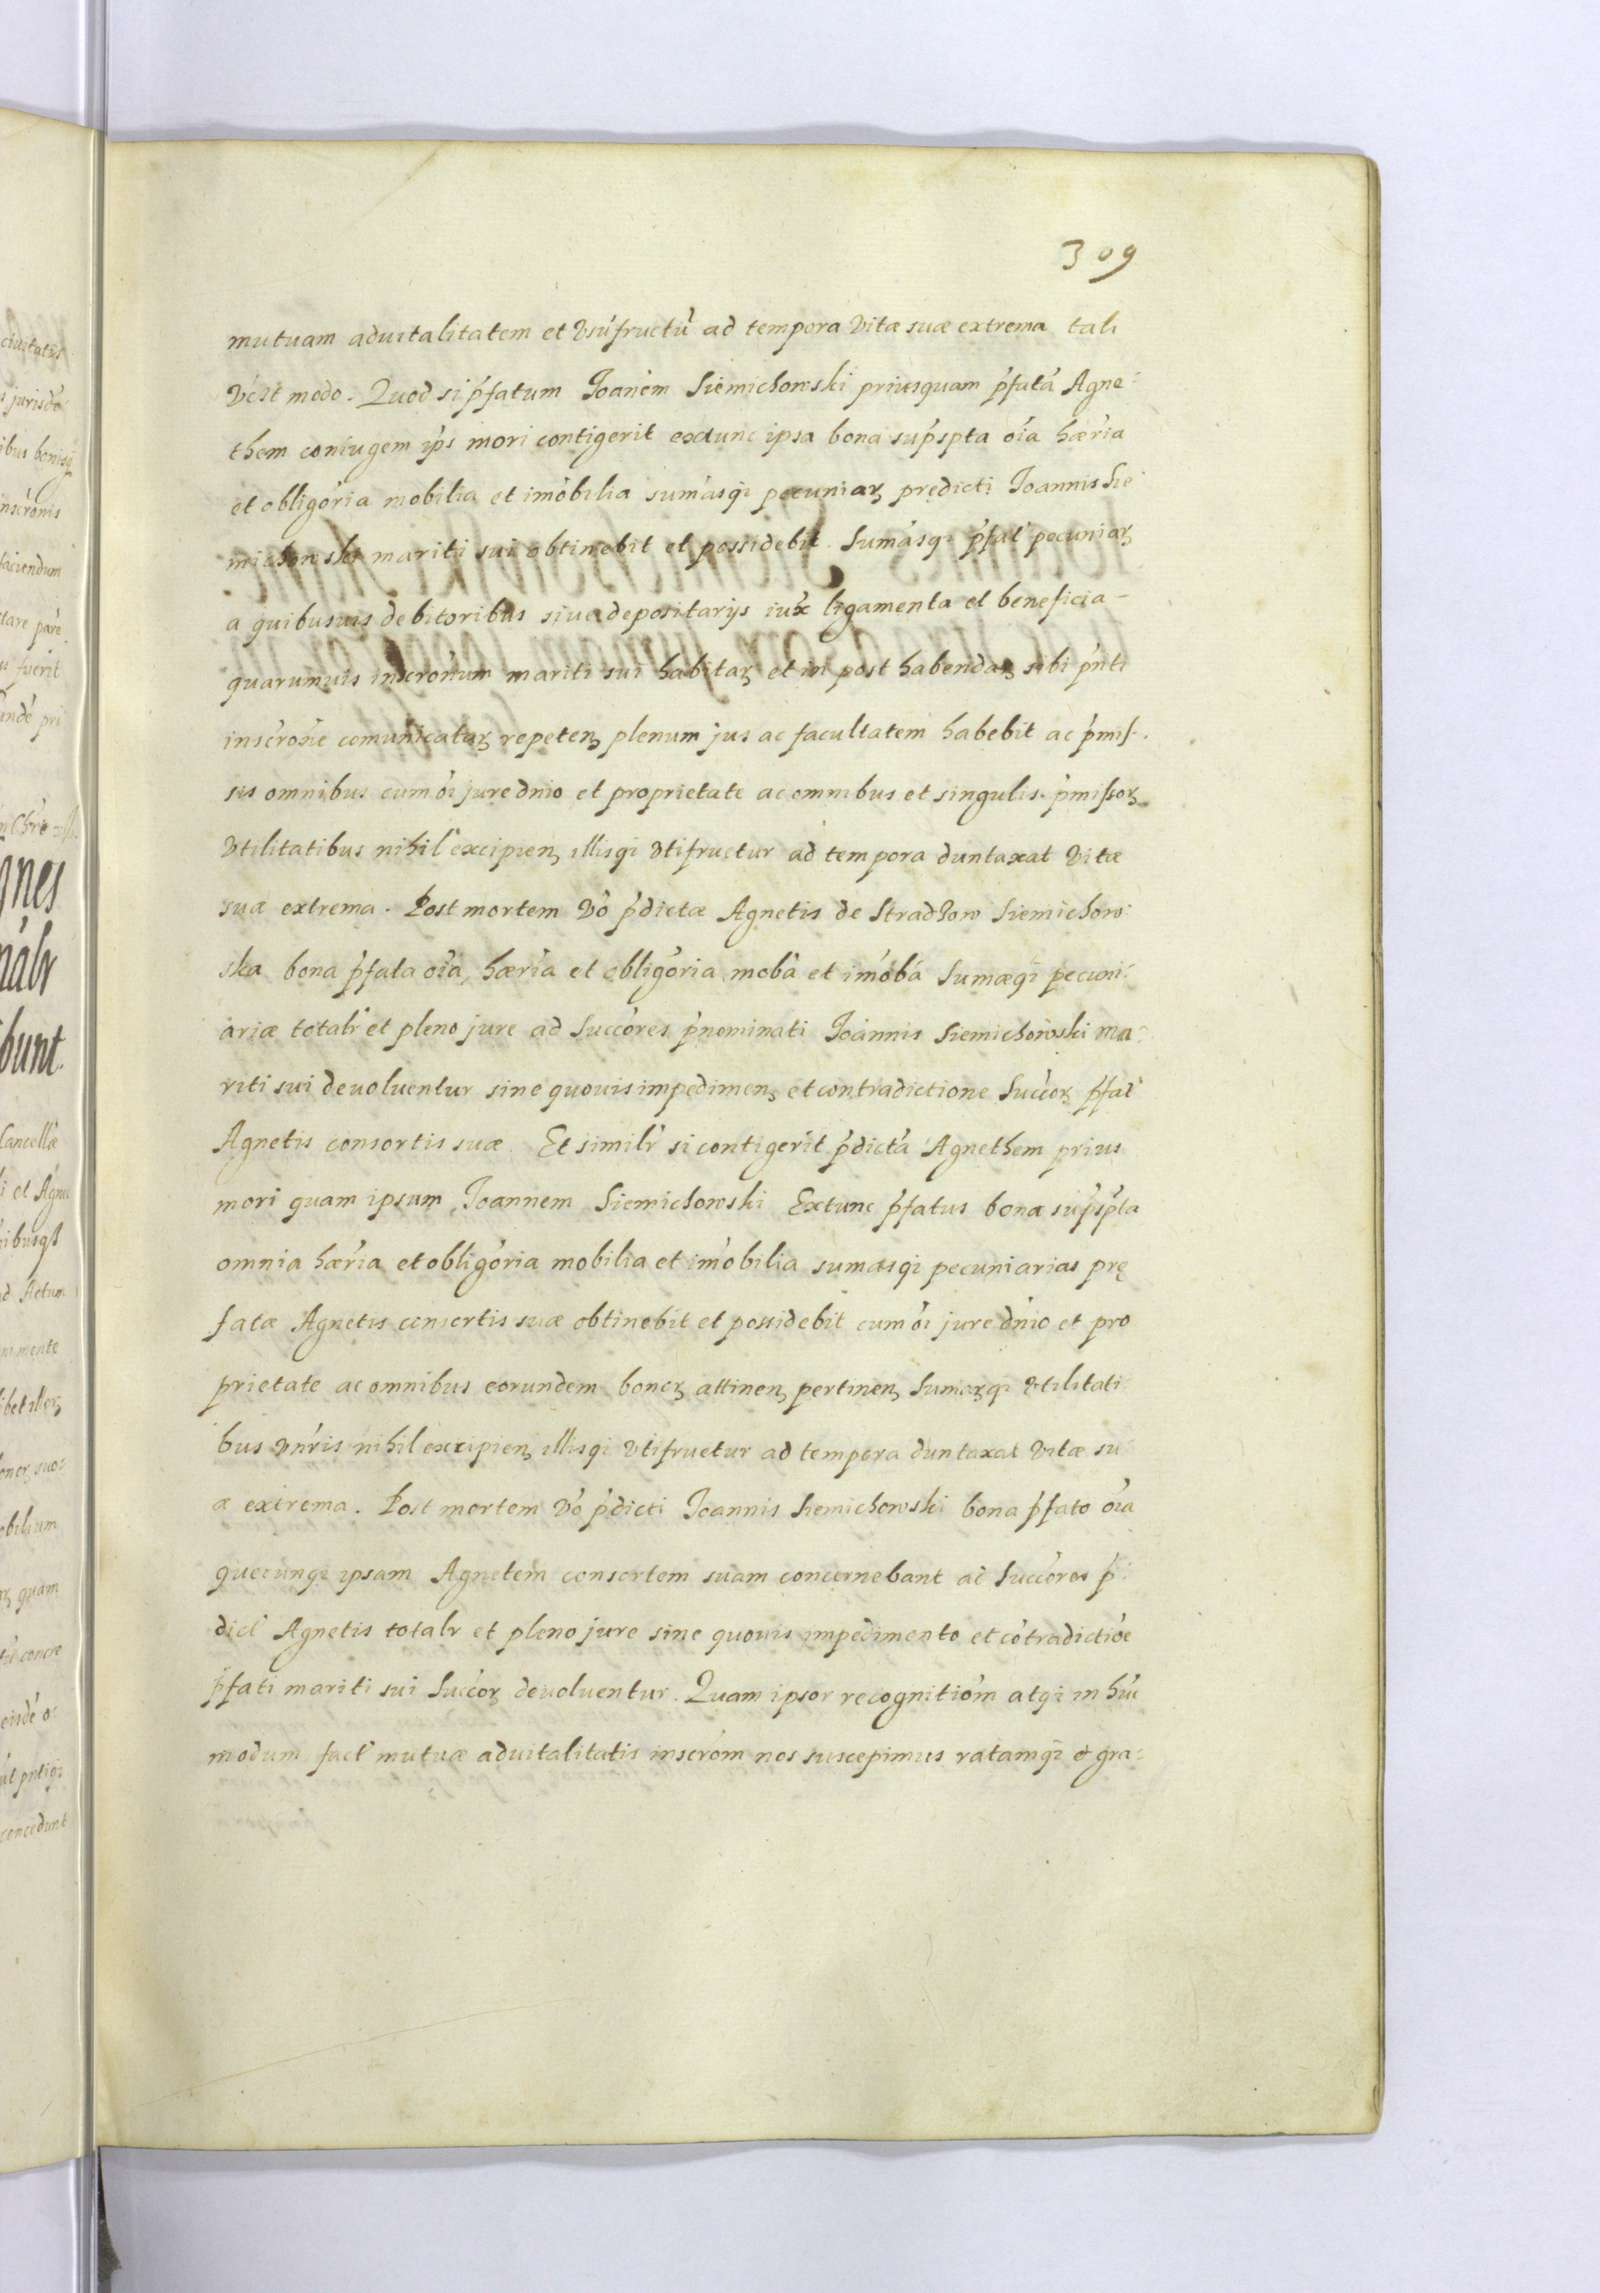 309
mutuam aduitalitatem et Vsúfructũ ad tempora Vitæ suæ extrema tali
modo. Quod si p̃fatum Joañem Siemichowski priusquam p̃fatã Agne
them coniugem ip̃s mori contigerit extunc ipsa bona sup̃spta õia hæria
et obligõria mobilia et im̃obilia sum̃asqȝ pecuniarȝ prędicti Joannis Sie
michowski mariti sui obtinebit et possidebit. Sum̃asqȝ p̃fat pecuniarȝ
a quibusuis debitoribus siue depositarijs iux̃ ligamenta et beneficia
quarumuis inscrõnum mariti sui habitarȝ et in post habendarȝ sibi p̃nti
inscrõne com̃unicatarȝ repetenȝ plenum jus ac facultatem habebit ac p̃miſ
sis omnibus cum õi jure dnio et proprietate ac omnibus et singulis p̃miſsorȝ
Vtilitatibus nihil excipienȝ illisqȝ Vtifruetur ad tempora duntaxat Vitæ
suæ extrema. Post mortem Võ p̃dictæ Agnetis de Stradzow Siemichow
ska bona p̃fata õia, hæria et obligõria mobã et im̃obã Sumæqȝ pecuni
ariæ totalr et pleno jure ad Succõres p̃nominati Joannis Siemichowski ma
riti sui deuoluentur sine quouis impedimenȝ et contradictione Succõrȝ p̃fat
Agnetis consortis suæ Et similr si contigerit p̃dictã Agnethem prius
mori quam ipsum Joannem Siemichowski Extunc p̃fatus bona sup̃sp̃ta
omnia hæria et obligõria mobilia et im̃obilia sumasqȝ pecuniarias prę
fatæ Agnetis consortis suæ obtinebit et possidebit cum õi jure dñio et pro
prietate ac omnibus eorundem bonorȝ attinenȝ pertinenȝ Sumarȝqȝ Vtilitati
bus Vñris nihil excipienȝ illisqȝ Vtifruetur ad tempora duntaxat Vitæ su
æ extrema. Post mortem Võ p̃dicti Joannis Siemichowski bona p̃fato õia
quecunqȝ ipsam Agnetem consortem suam concernebant ad Succõres p̃
dict Agnetis totalr et pleno jure sine quouis impedimento et cõtradictiõe
p̃fati mariti sui Succõrȝ deuoluentur. Quam ipsor recognitiõm atqȝ in hũc
modum fact mutuæ aduitalitatis inscrõm nos suscepimus ratamqȝ & gra